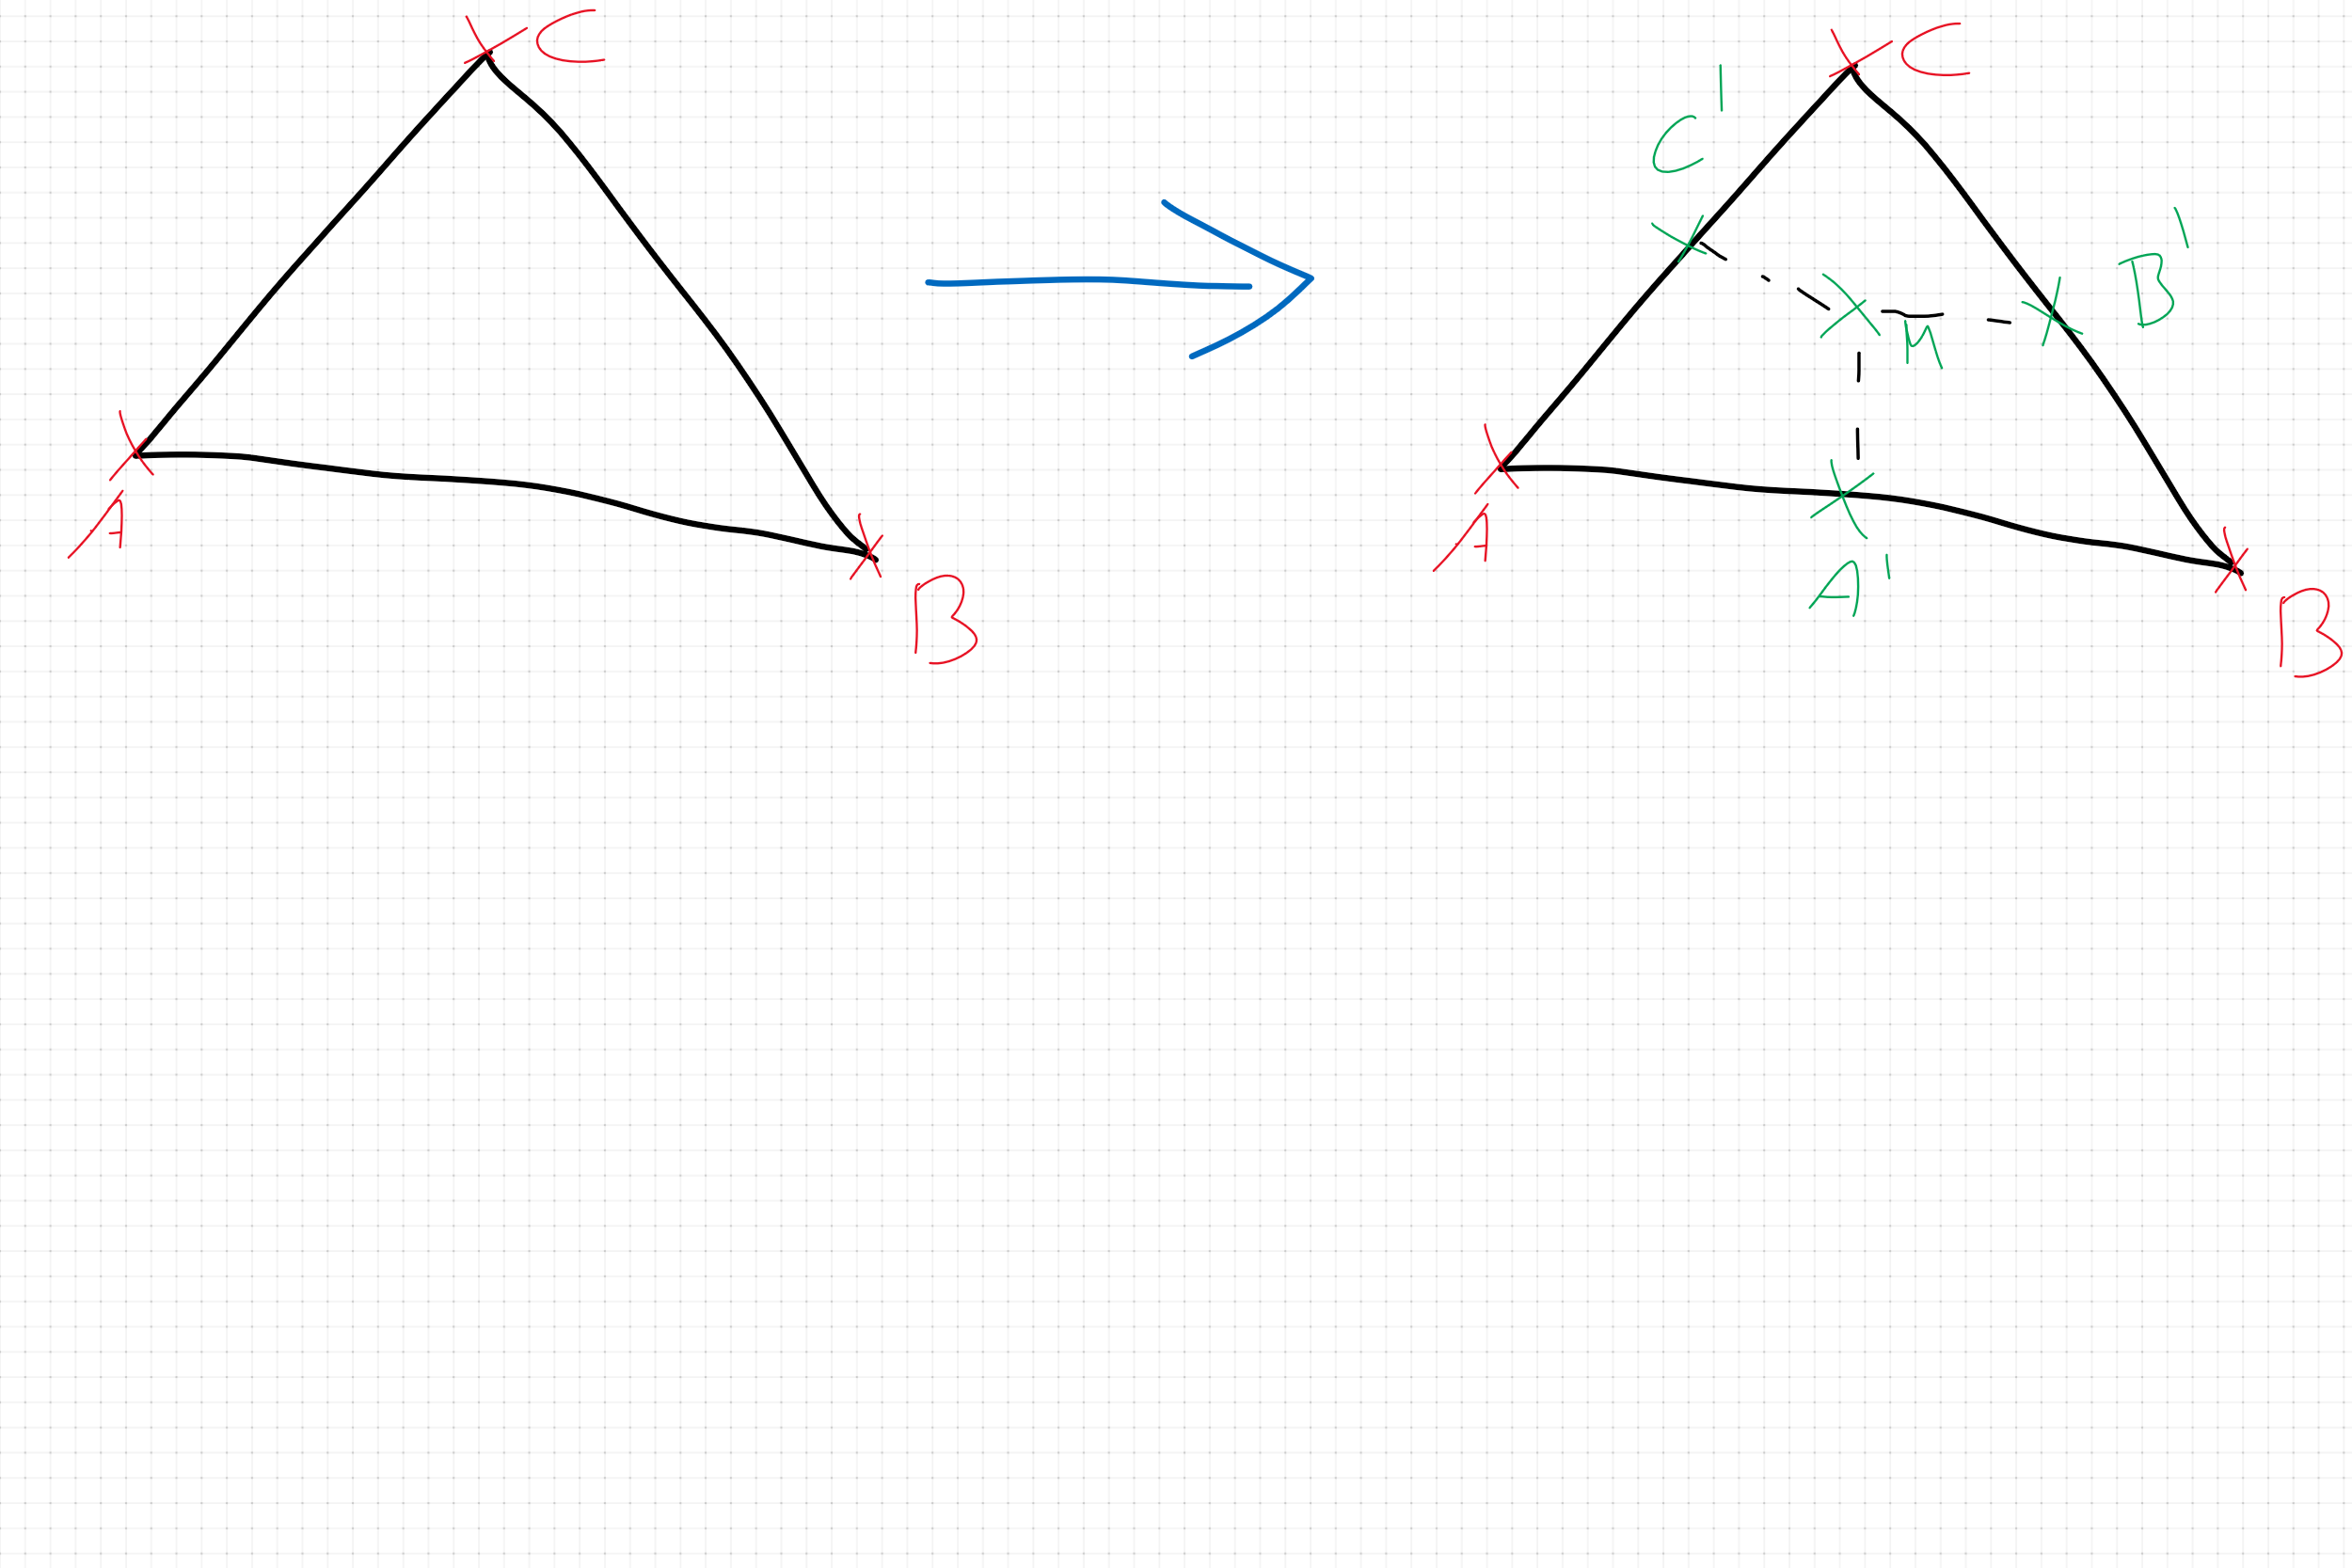 C
A
B
C
C'
B'
M
A
A'
B